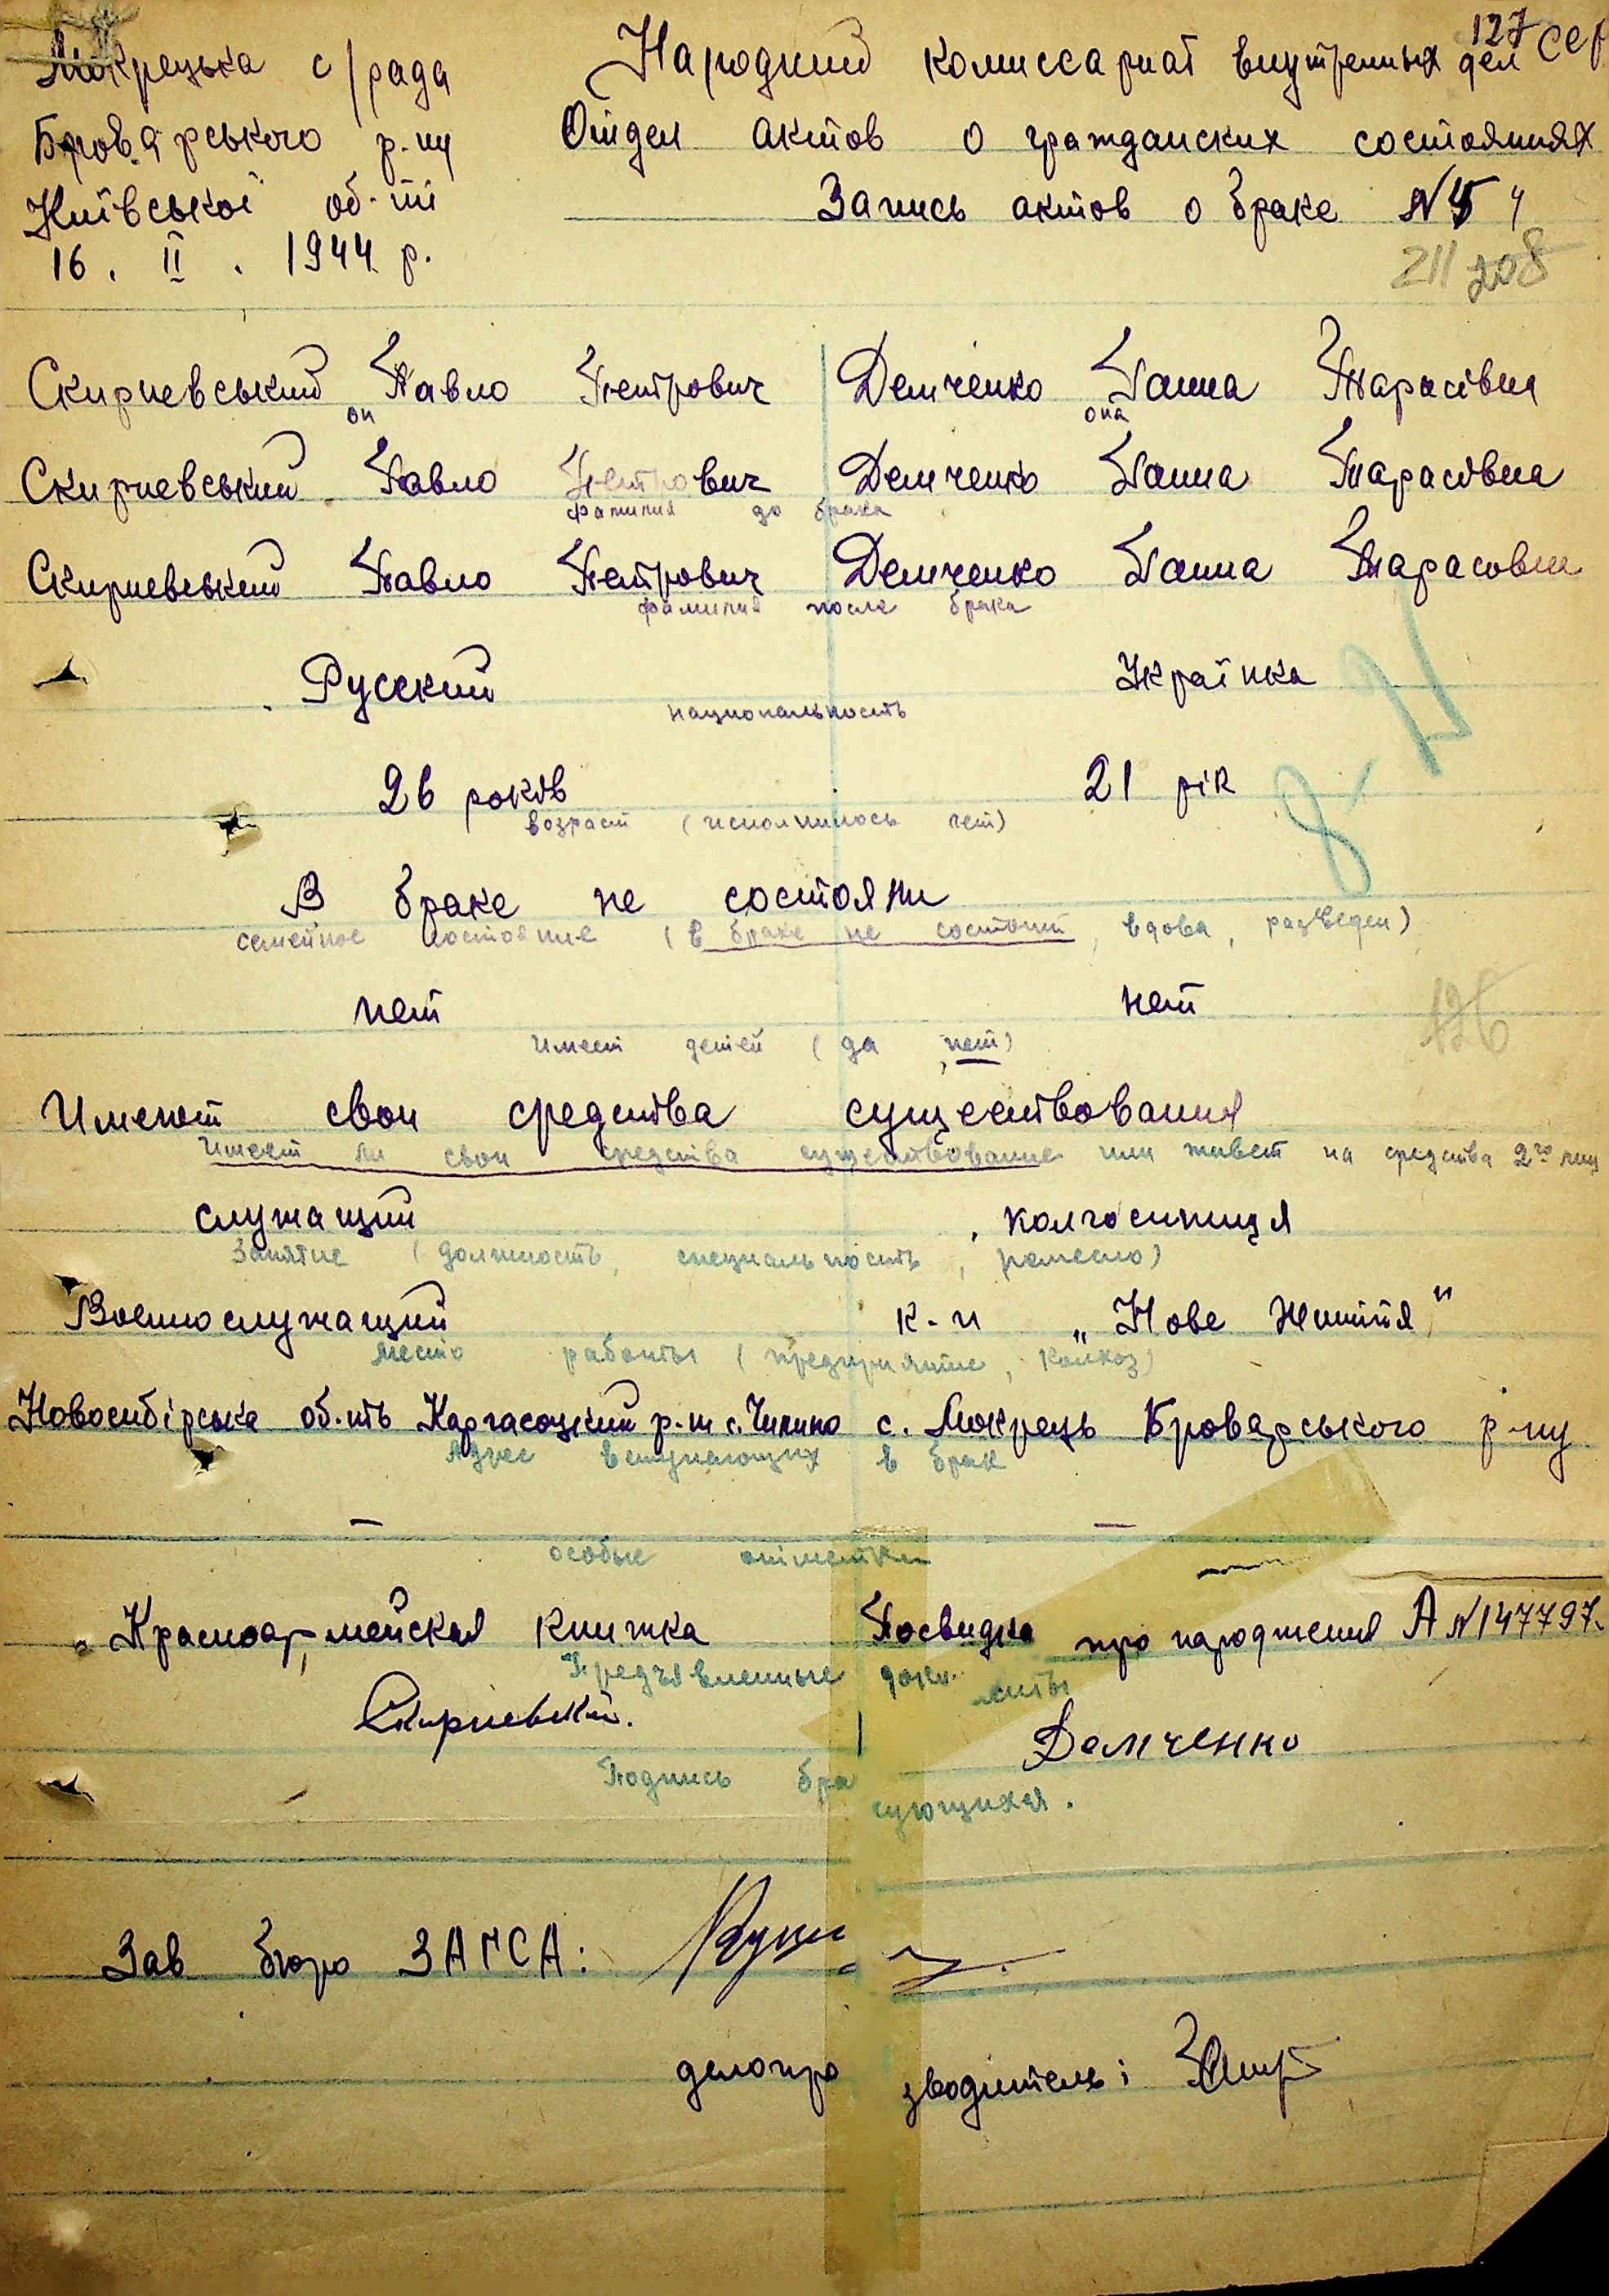 Мокрецька с/рада
Броварського р-ну
Київської об-ті
16. II. 1944 р.
127
Народний комиссариат внутренных дел
Отдел актов о гражданских состояниях
Запись актов о браке №
211 208
Скирневський Павло Петрович Демченко Ганна Тарасівна
он она
Скирневський Павло Петрович Демченко Ганна Тарасівна
фамилия до брака
Скирневський Павло Петрович Демченко Ганна Тарасовна
фамилия после брака
Русский Українка
национальность
26 років 21 рік
возраст (исполнилось лет)
В браке не состояли
семейное состояние (в браке не состоит, вдова, разведен)
нет нет
126
имеет детей (да, нет)
Имеют свои средства существования
имеет ли свои средства существование или живет на средства 2го лиц
служащий колгоспниця
Занятие (должность, специальность, ремесло)
Военнослужащий к-п „Нове життя"
место работы (предприятие, колхоз)
Новосибірська об-ть Каргасоцкий р-н с. Чилино с. Мокрець Броварського р-ну
Адрес вступающих в брак
— —
особые отметки
Красноармейская книжка Посвидка про народження А №147797
Предъявленные документы
Скирневский. Демченко
Подпись брачующихся.
Зав бюро ЗАГСА:
делопро зводитель: